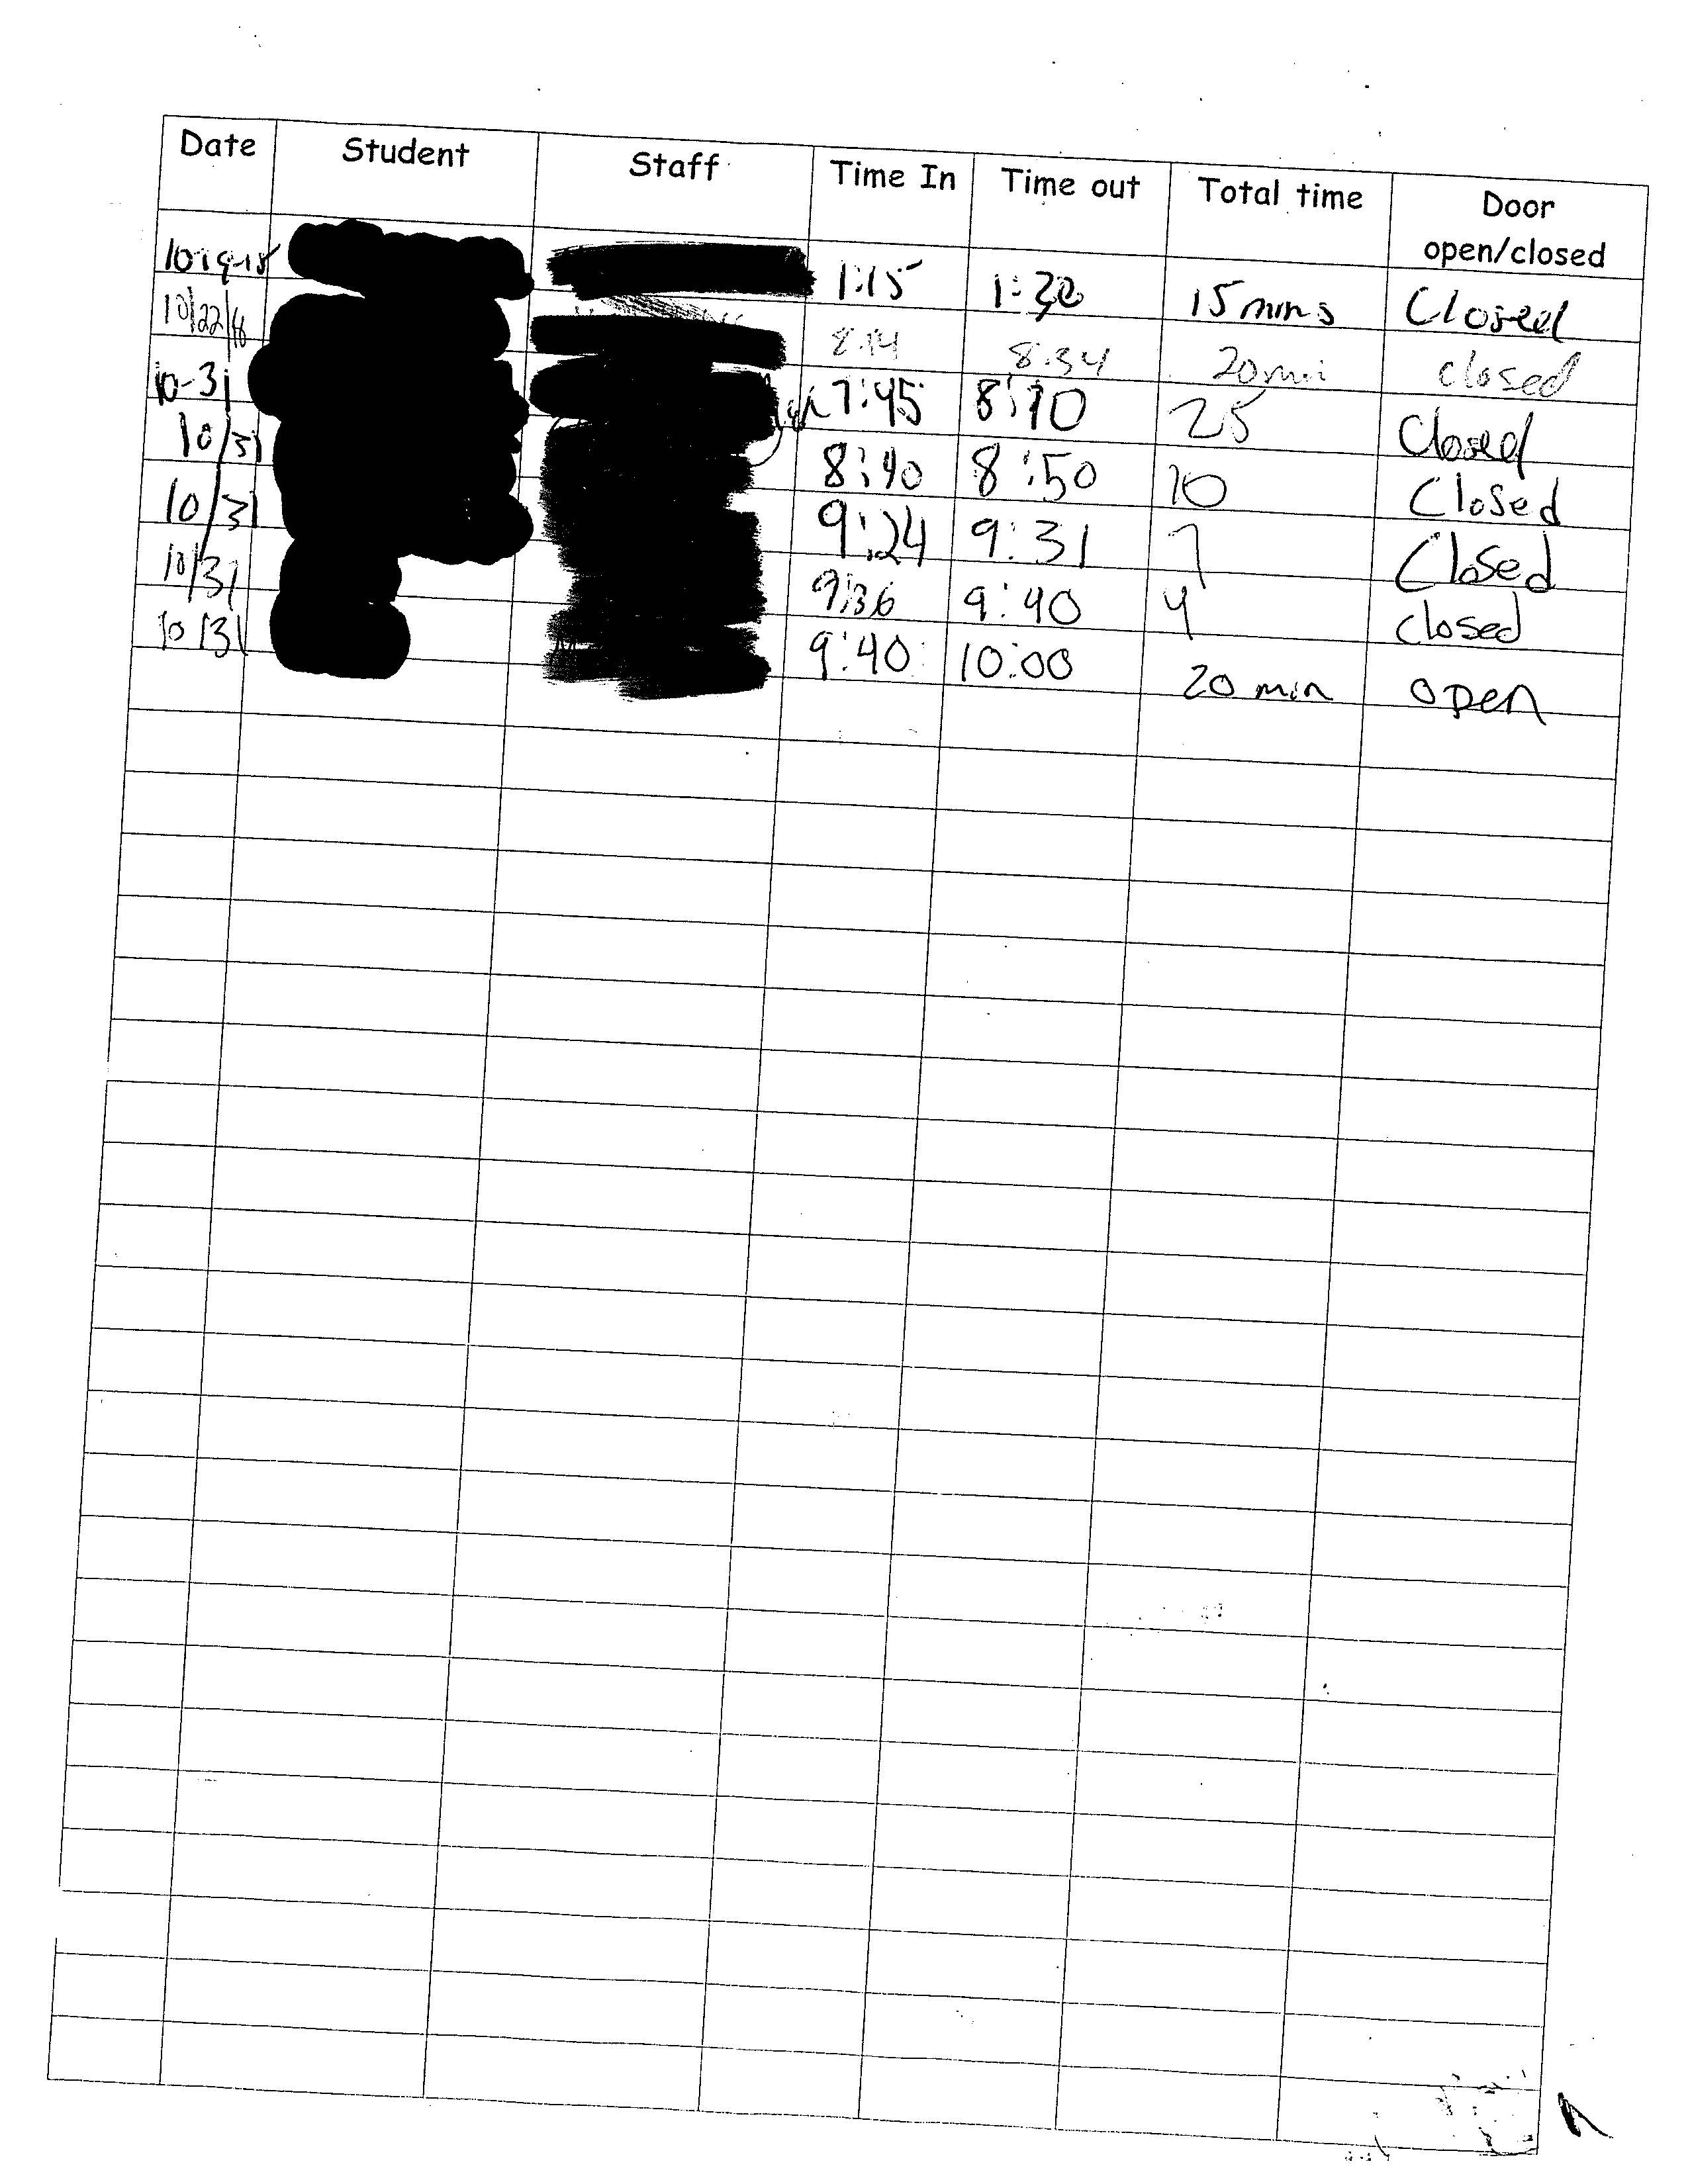 Date Student Staff Time In Time out Total time Door open/closed
1:15 1:30 15 mins Closed
10/22/18 8:14 8:34 20 min closed
10-31 7:45 8:10 25 Closed
10/31 8:40 8:50 10 Closed
10/31 9:24 9:31 7 Closed
10/31 9:36 9:40 4 closed
10/31 9:40 10:00 20 min open